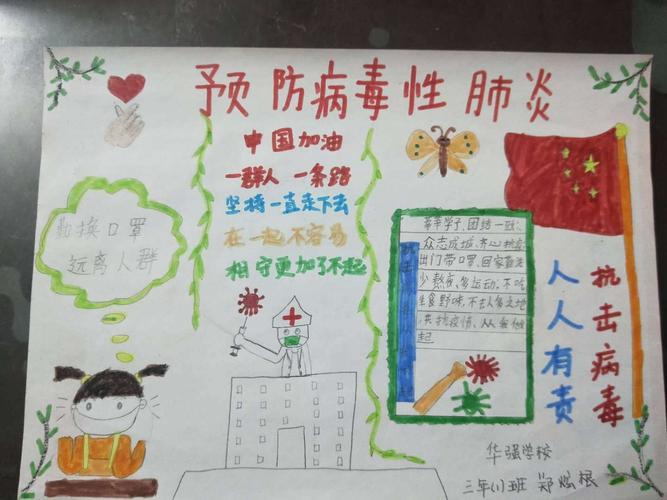 预防病毒性肺炎
中国加油
一群人 一条路
坚持一直走下去
在一起不容易
相守更加了不起
勤换口罩
远离人群
莘莘学子,团结一致、
众志成城、齐心抗疫
出门带口罩、回家勤洗
少熬夜、多运动、不吃
生食野味、不去人多之地
共抗疫情、从我做
起
抗击病毒
人人有责
华强学校
三年(1)班 郑